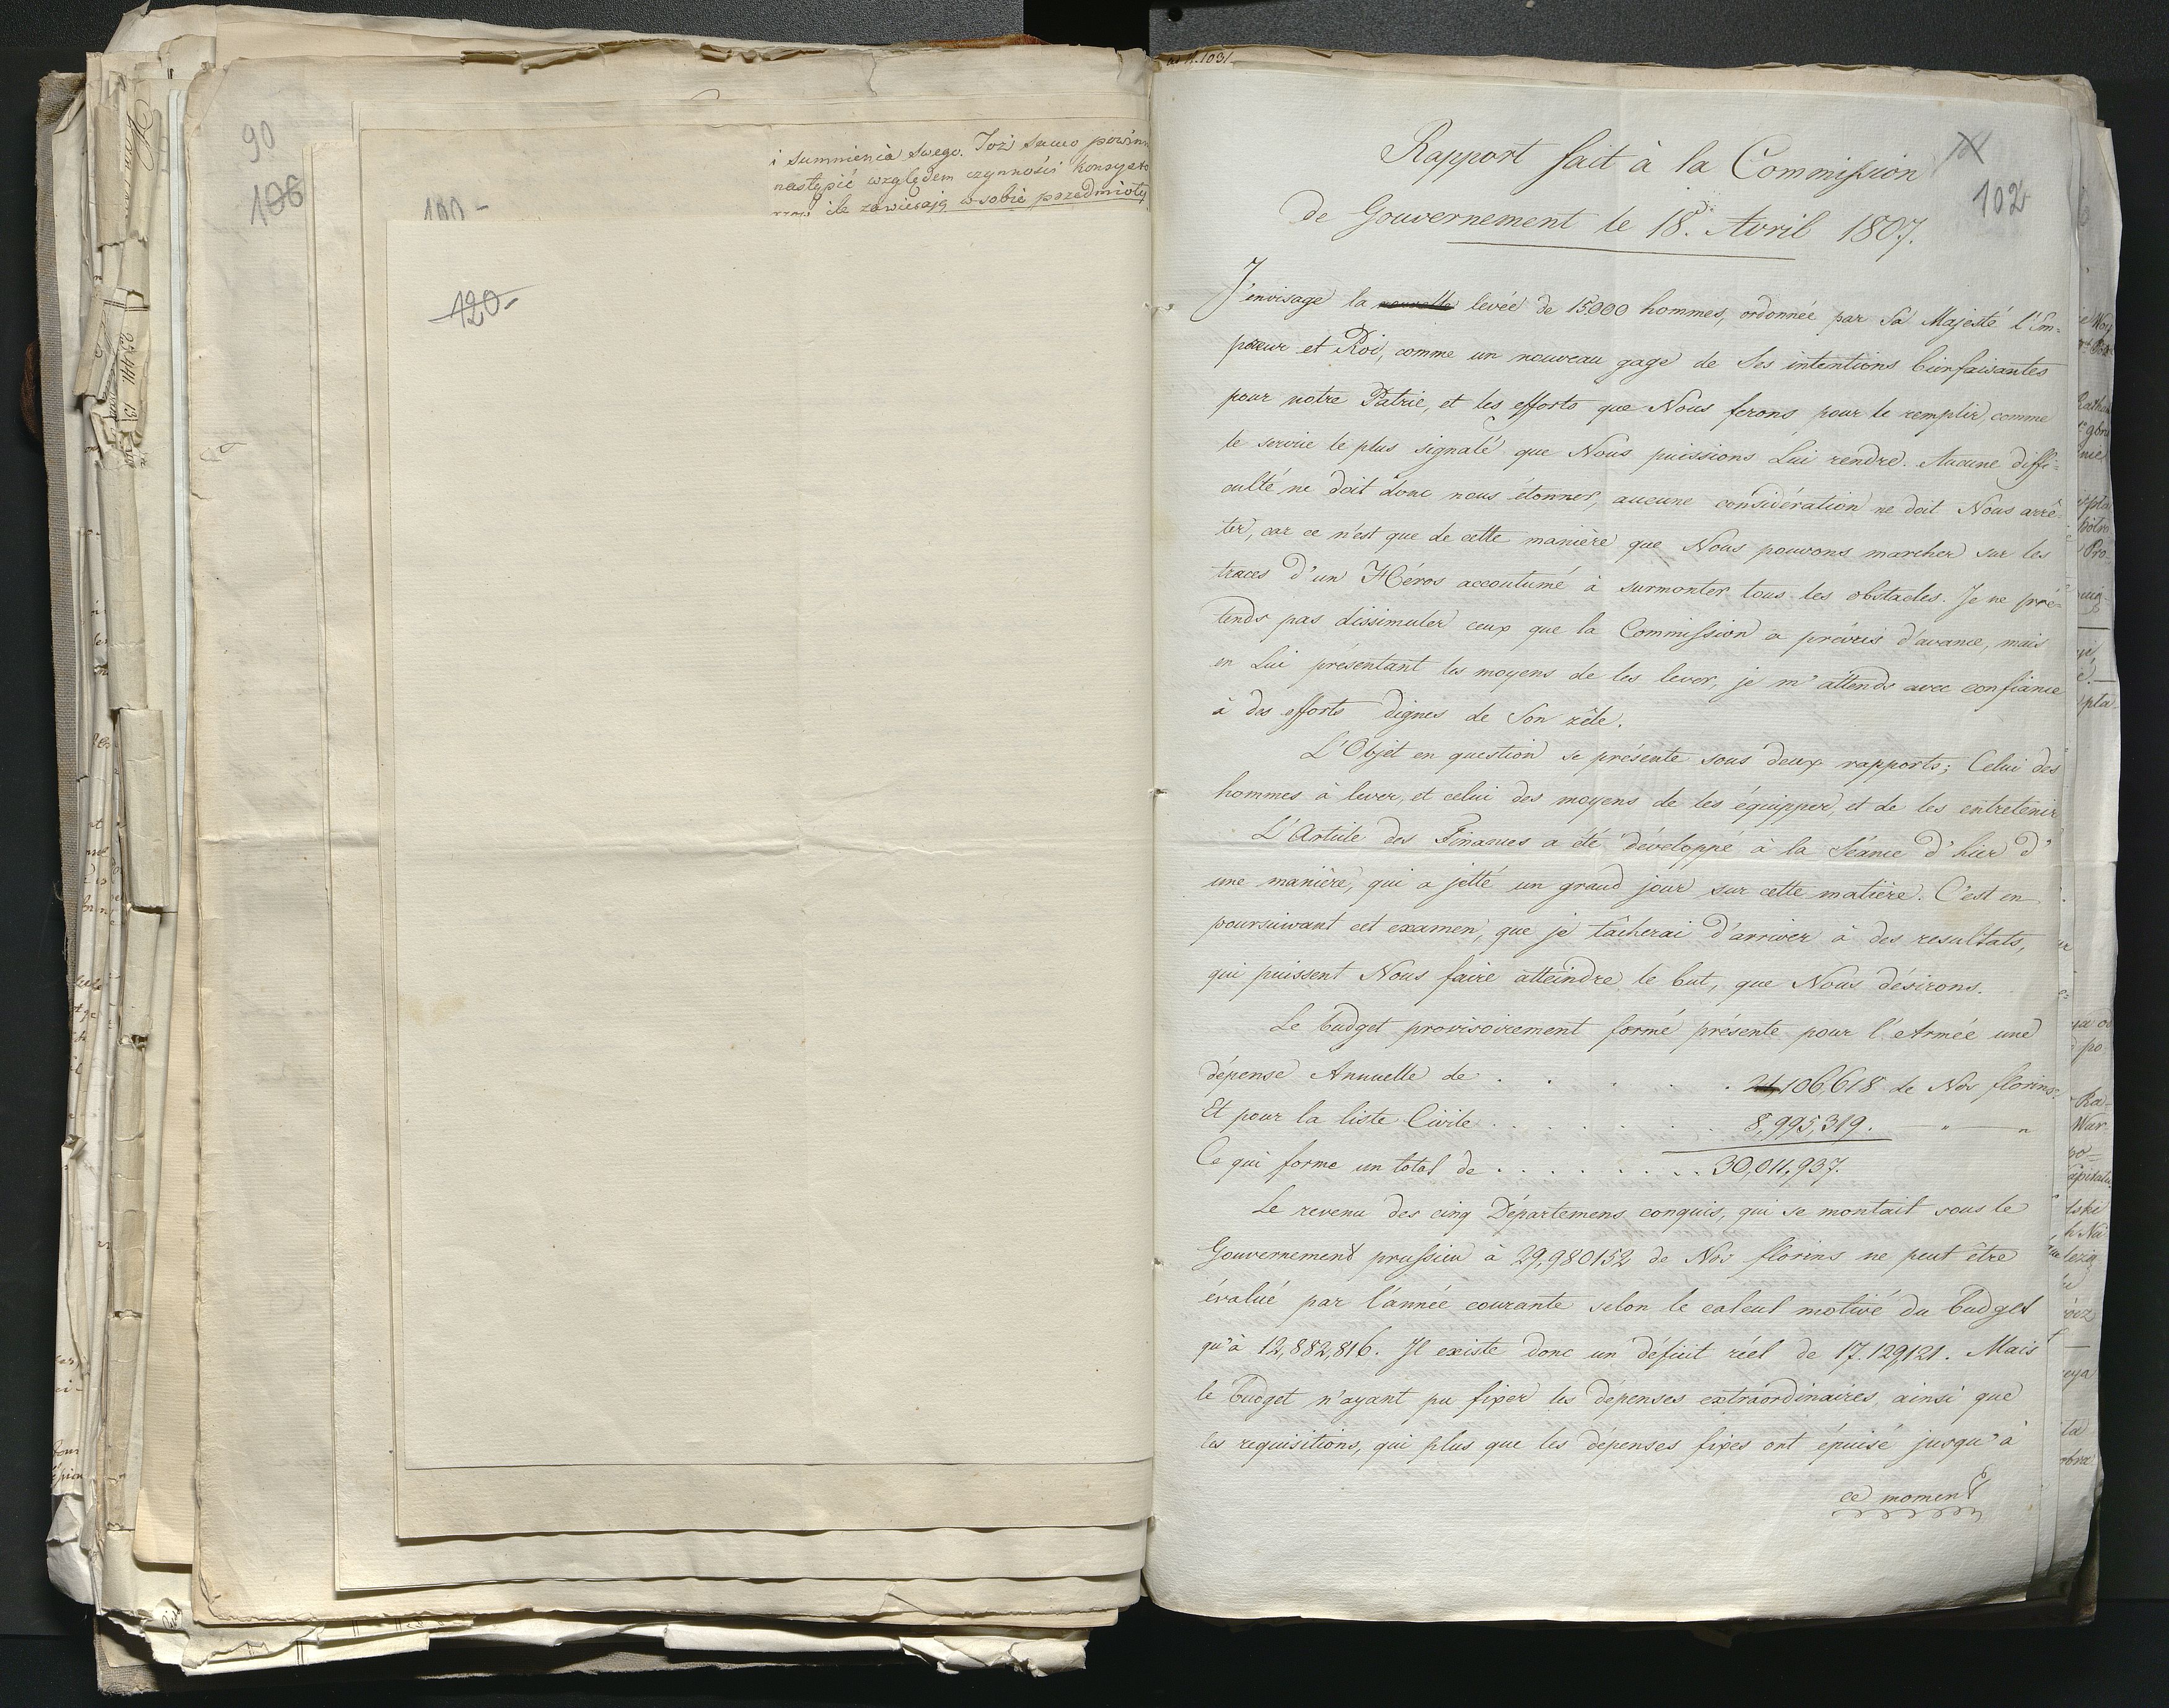 90
106
100-
i sumnienia swego. Toż samo powinn
nastąpić względem czynności
ile zawierają w sobie przedmioty
120-
102
Rapport fait à la Commission
de Gouvernement le 18. Avril 1807.
J'envisage la nouvelle levée de 15000 hommes, ordonnée par Sa Majesté l'Em-
pereur et Roi, comme un nouveau gage de Ses intentions bienfaisantes
pour notre Patrie, et les efforts que Nous ferons pour le remplir, comme
le service le plus signalé que Nous puissions Lui rendre. Aucune diffi-
culté ne doit donc nous étonner, aucune considération ne doit Nous arrê-
ter, car ce n'est que de cette manière que Nous pouvons marcher sur les
traces d'un Héros accoutumé à surmonter tous les obstacles. Je ne pré-
tends pas dissimuler ceux que la Commission a prévus d'avance, mais
en Lui présentant les moyens de les lever, je m'attends avec confiance
à des efforts dignes de Son zèle.
L'Objet en question se présente sous deux rapports; Celui des
hommes à lever, et celui des moyens de les équipper, et de les entretenir
L'Article des Finances a été développé à la Séance d'hier d'
une manière, qui a jetté un grand jour sur cette matière. C'est en
poursuivant cet examen, que je tâcherai d'arriver à des resultats,
qui puissent Nous faire atteindre le but, que Nous désirons.
Le budget provisoirement formé présente pour l'Armée une
dépense Annuelle de . . . . . 21,106,618 de Nos florins.
Et pour la liste Civile . . . . . . . 8,995,319. " — "
Ce qui forme un total de . . . . . . . . 30,011,937.
Le revenu des cinq Départemens conquis, qui se montait sous le
Gouvernement prussien à 29,980152 de Nos florins ne peut être
évalué par l'année courante selon le calcul motivé du budget
qu'à 12,882,816. Il existe donc un déficit réel de 17.129,121. Mais
le budget n'ayant pu fixer les dépenses extraordinaires, ainsi que
les requisitions, qui plus que les dépenses fixes ont épuisé jusqu'à
ce moment